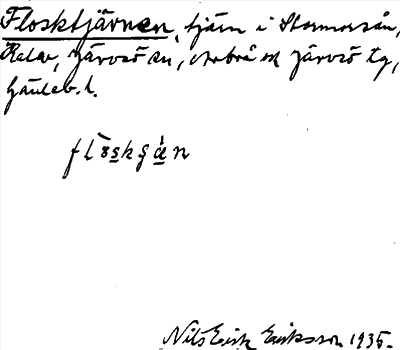 Flosktjärnen, tjärn i Stormorsån,
Kalv, Järvsö sn, Arbrå ok Järvsö tg,
Gävleb. l.
flåskʃæ̀n
Nils Erik Eriksson 1935.